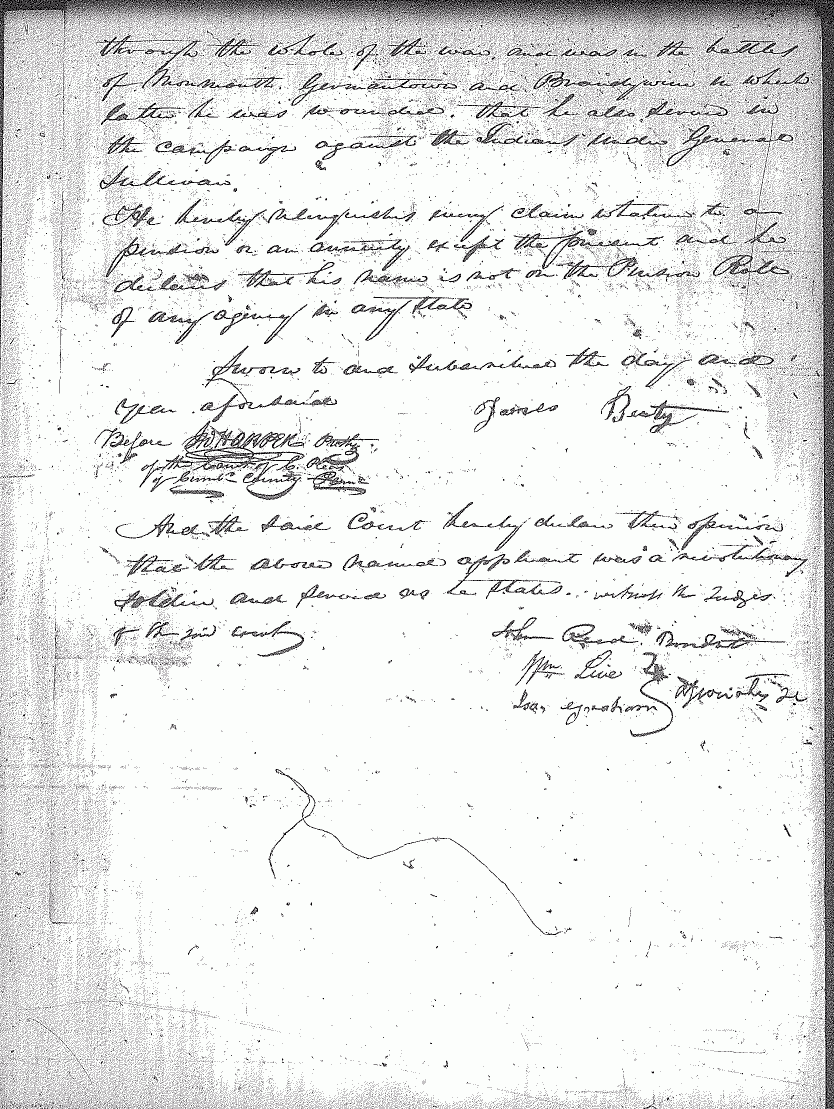 through the whole of the war, and was in the battles
of Monmouth. Germantown and Brandywine in which
latter he was wounded. that he also served in
the campaign against the Indians under General
Sullivan.
He hereby relinquishes every claim whatever to a
pension or an annuity except the present and he
declares that his name is not on the Pension Role
of any agency in any State
Sworn to and Subscribed the day and
year aforesaid James Beaty
Before Prothy
of the Court of C. Pleas
of Cumb. County Penn
And the said Court hereby declare their opinion
that the above named applicant was a revolutionary
soldier and served as he states. witness the Judges
of the said court
John Reed President
Wm Line
Isaac